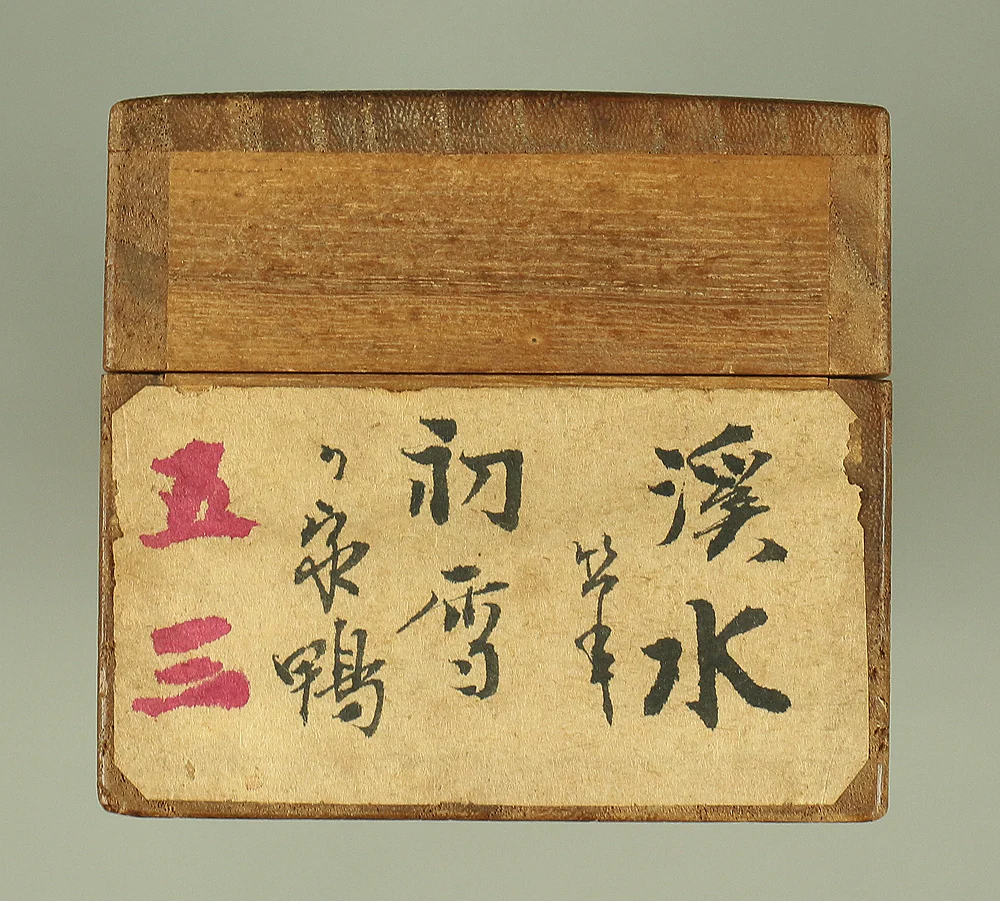 溪水
筆
初雪
の家鴨
五三